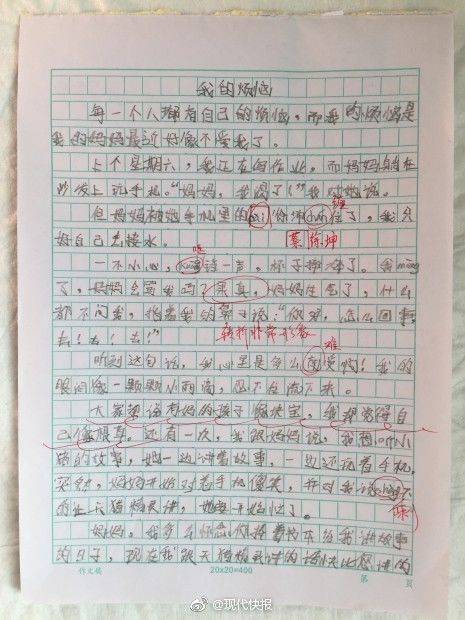 我的烦恼
每一个人都有自己的烦恼，而我的烦恼是
我的妈妈最近好像不爱我了。
上个星期六，我正在写作业，而妈妈躺在
沙发上玩手机。“妈妈，我渴了！”我对她说。
但妈妈被她手机里的
住了，我只
缠
好自己去接水。
蔡徐坤
一不小心，
一声，杯子摔碎了。我
了，妈妈会骂我吗？果真，妈妈生气了，什么
都不问我，指着我的鼻子说：“你呀，怎么回事，
去！去！去！”
转折非常形象
难
听到这句话，我心里是多么
受啊！我的
眼泪像一颗颗小雨滴，忍不住流下来。
大家都说有妈的孩子像块宝，我却觉得自
己像根草。还有一次，我跟妈妈说，我想
小
猪的故事，她一边讲着故事，一边还玩着手机，
突然，妈妈开始对着手机傻笑，并对我说
妈妈，我多么怀念你捧着书本给我讲故事
的日子，现在我跟天猫精灵讲的话都比您讲的
作文稿
20×20=400
第 页
@现代快报